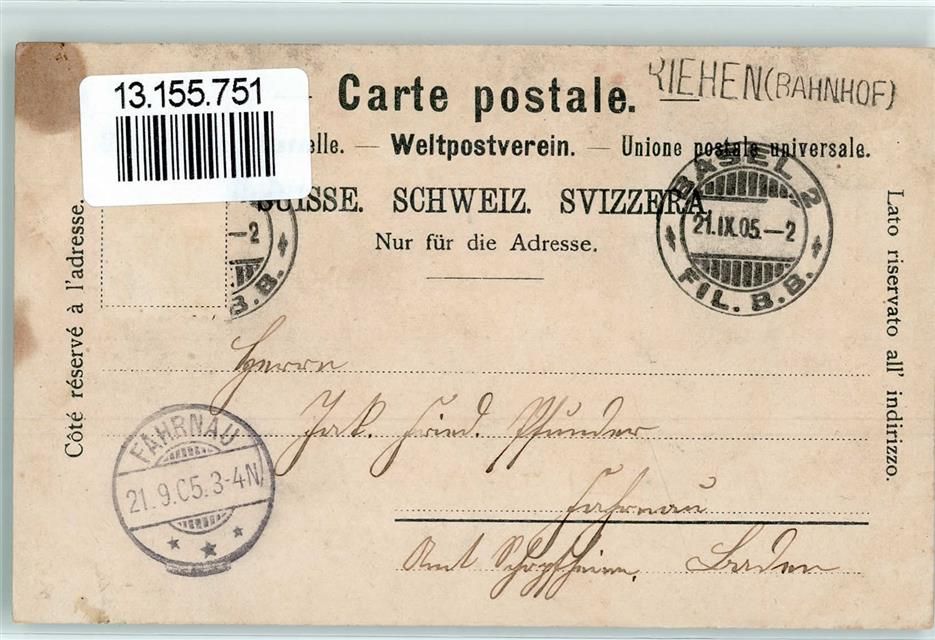 13.155.751
Carte postale.
RIEHEN (BAHNHOF)
elle. — Weltpostverein. — Unione postale universale.
SUISSE. SCHWEIZ. SVIZZERA
Nur für die Adresse.
BASEL 2
21.IX.05.—2
FIL. B.B.
—2
B.B.
Côté réservé à l'adresse.
Lato riservato all' indirizzo.
Herrn
Jak. Fried. Pfunder
Fahrnau
Amt Schopfheim. Baden
FAHRNAU
21.9.05.3-4N